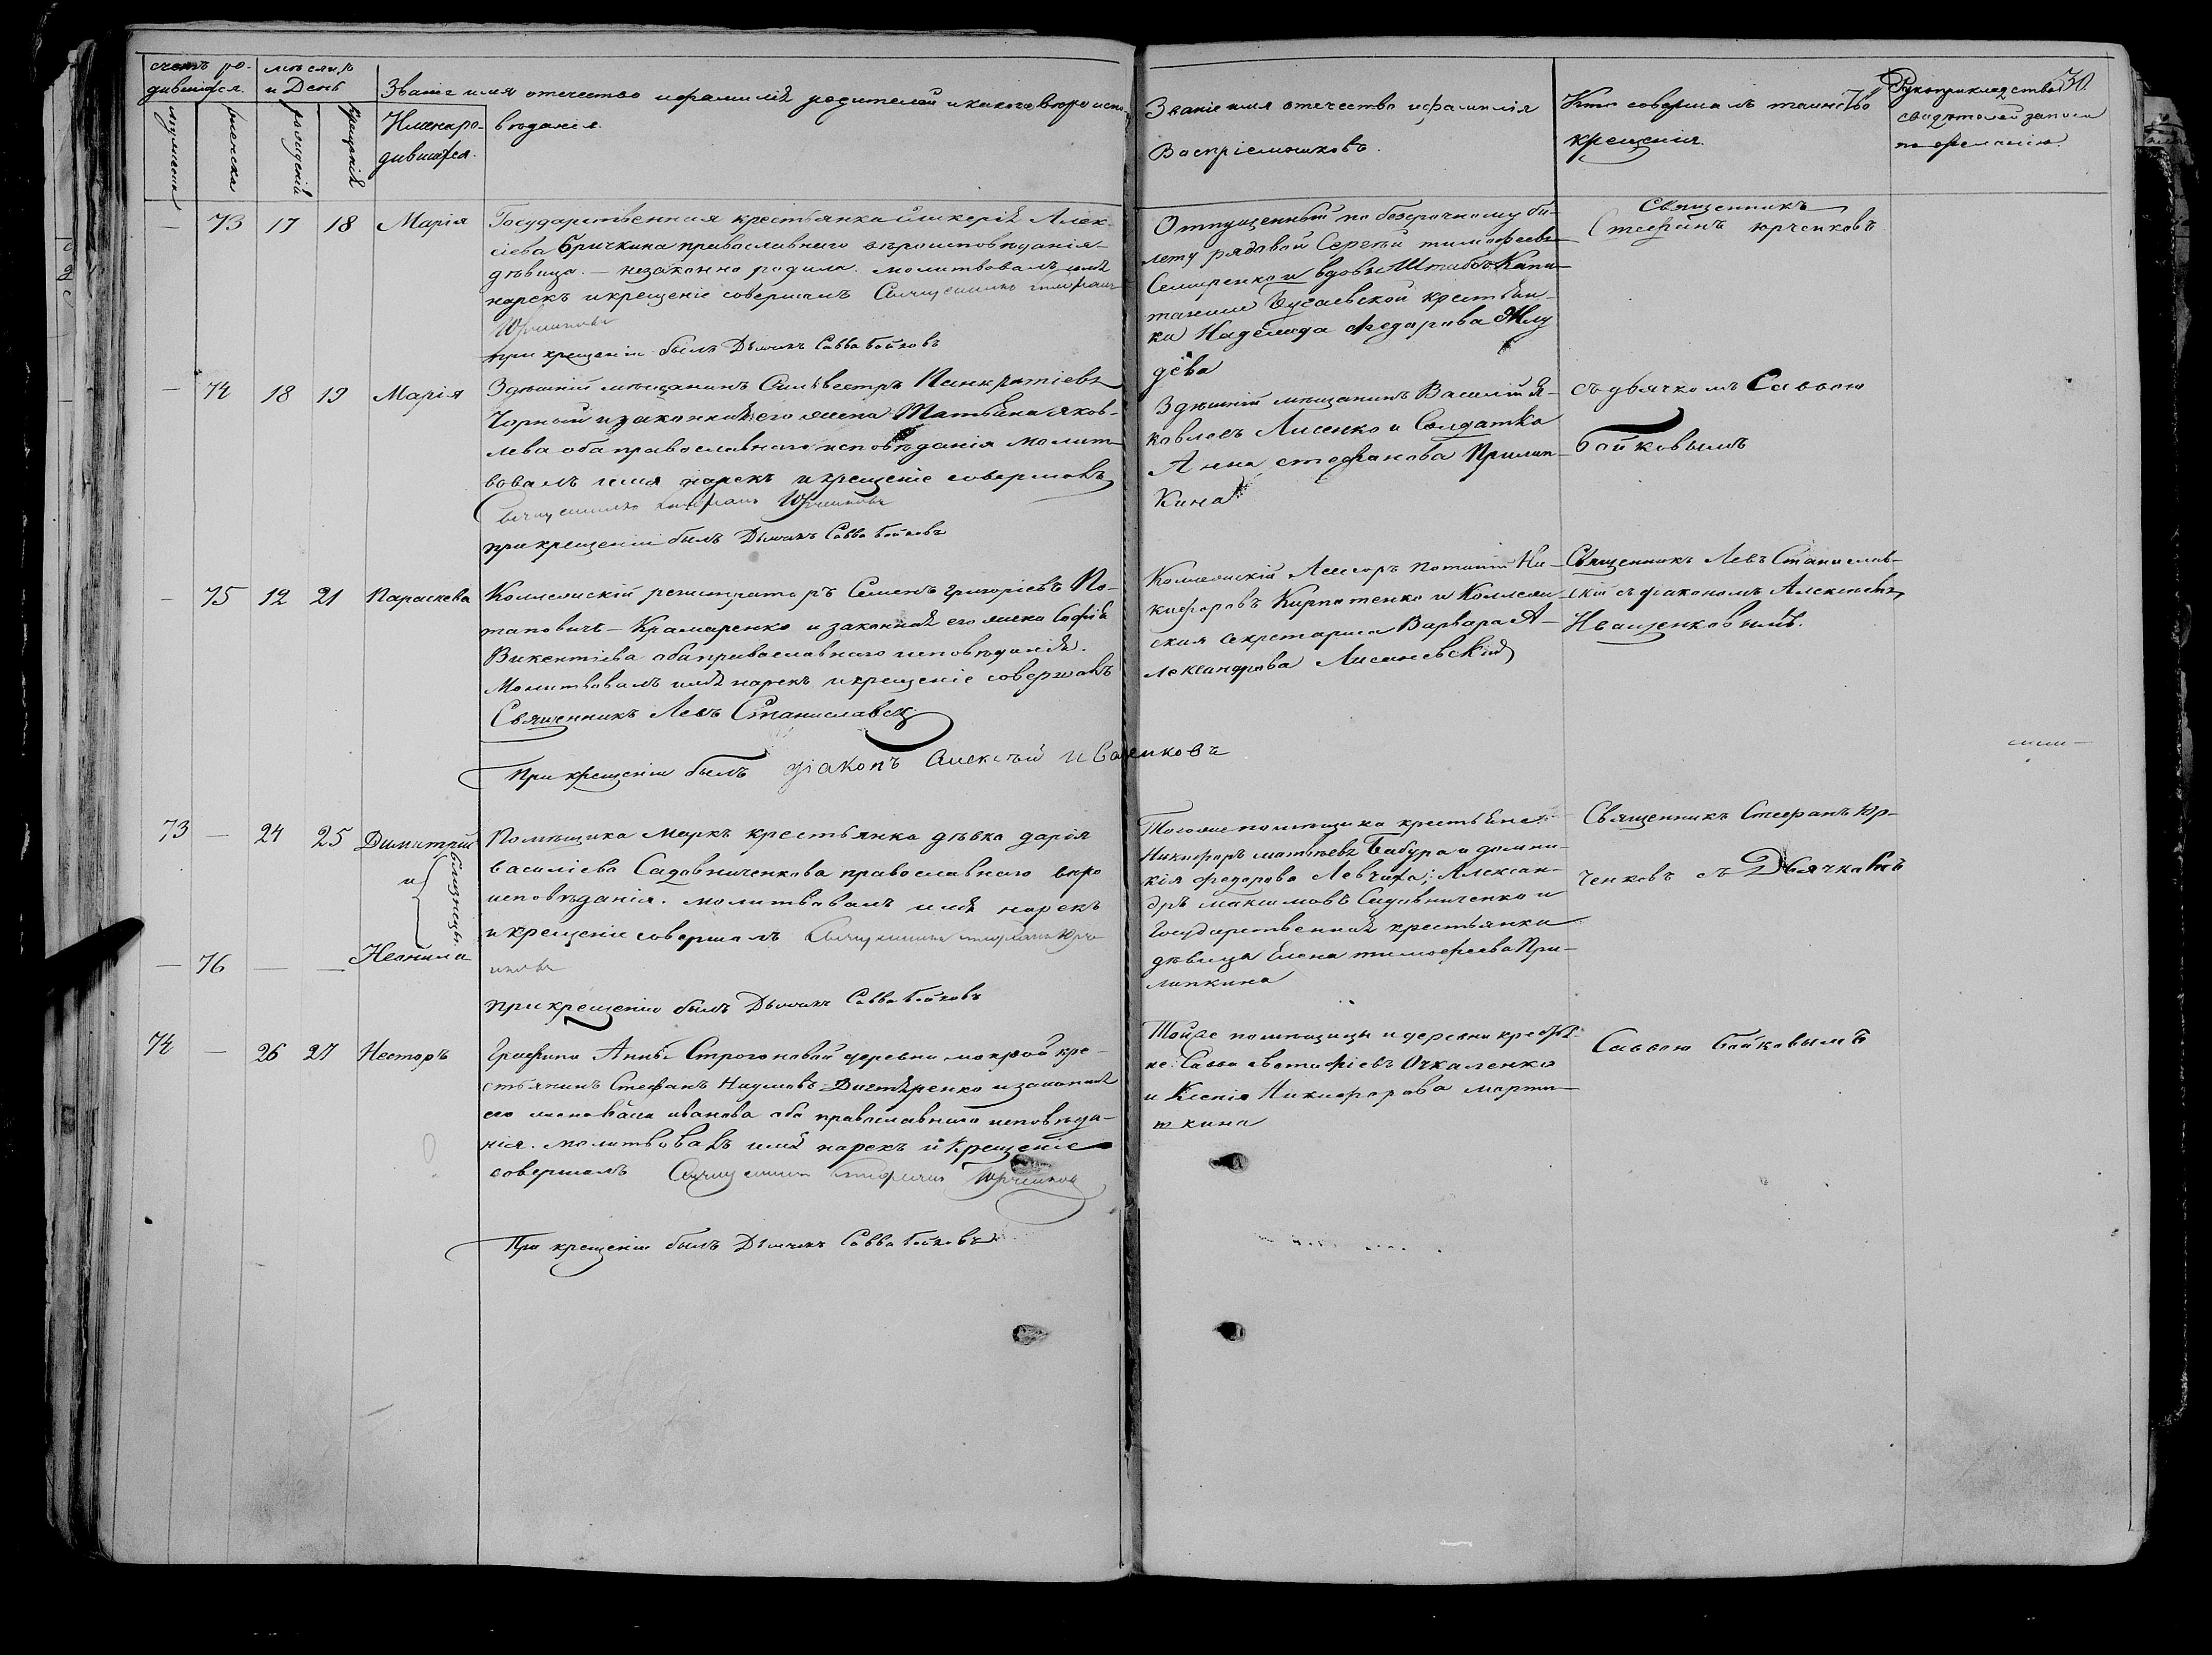 30.
счетъ ро-
дившихся.
мѣсяцъ
и День
Званіе имя отечество и фамилія родителей и какого вѣроиспо-
вѣданія.
мужеска
женска
рожденія
крещенія
Имена ро-
дившихся.
Званіе имя отечество и фамилія
Воспріемниковъ.
Кто совершалъ таинство
крещенія.
Рукоприкладство
свидѣтелей записи
по желанію.
— 73 17 18 Марія
Государственная крестьянка Алек-
сіева Бричкина православнаго вѣроисповѣданія
дѣвица. — незаконно родила. молитвовалъ имя
нарекъ и крещеніе совершалъ Священникъ Стефанъ
Юрченковъ
при крещеніи былъ Дьячекъ Савва Бойковъ
Отпущенный по безсрочному би-
лету рядовой Сергѣй тимофеевъ
Семиренко и вдовы Штабсъ Капи-
танши крестьян-
ка Надежда Федорова Жлу
дева
Священникъ
Стефанъ юрченковъ
— 74 18 19 Марія
Здѣшній мѣщанинъ Сильвестръ Панкратіевъ
Чорный и законная его жена Татьяна яков-
лева оба православнаго исповѣданія молит-
вовалъ имя нарекъ и крещеніе совершалъ
Священникъ Стефанъ Юрченковъ
при крещеніи былъ Дьячекъ Савва Бойковъ
Здѣшній мѣщанинъ Василій Я-
ковлевъ Лисенко и Солдатка
Анна стефанова Прилип-
кина
съ дьячкомъ Саввою
бойковымъ
— 75 12 21 Параскева
Коллежскій регистраторъ Семенъ григоріевъ По-
таповичъ — Крамаренко и законная его жена Софія
Викентіева оба православнаго исповѣданія.
Молитвовалъ имя нарекъ и крещеніе совершалъ
Священникъ Левъ Станиславскій
При крещеніи былъ діаконъ Алексѣй Иващенковъ
Коллежскій Асессоръ Потапій Ни-
кифоровъ Кирпотенко и Коллеж-
ская секретарша Варвара А-
лександрова Лисаневская
Священникъ Левъ Станислав-
скій съ діакономъ Алексѣемъ
Иващенковымъ.
73 — 24 25 Димитрій
и близнецы.
— 76 — — Неонила
Помѣщика Маркъ крестьянка дѣвка дарія
василіева Садовниченкова православнаго вѣро
исповѣданія. молитвовалъ имя нарекъ
и крещеніе совершалъ Священникъ стефанъ Юрче
нковъ
при крещеніи былъ Дьячекъ Савва Бойковъ
Тогоже помѣщика крестьяне:
Никифоръ матвѣевъ Бабура и домни-
кія федорова Левчифа; Алексан-
дръ максимовъ Садовниченко и
Государственная крестьянка
дѣвица Елена тимофеева При-
липкина
Священникъ Стефанъ Юр-
ченковъ съ Дьячкомъ
74 — 26 27 Несторъ
Графини Анны Строгоновой деревни мокрой кре-
стьянинъ Стефанъ Наумовъ Дигтяренко и законная
его жена иванова оба православнаго исповѣда-
нія. молитвовалъ имя нарекъ и крещеніе
совершалъ Священникъ стефанъ Юрченковъ
При крещеніи былъ Дьячекъ Савва Бойковъ
Тойже помѣщицы и деревни крестья-
не: Савва евстафіевъ Очкаленко
и Ксенія Никифорова марты-
шкина
Саввою бойковымъ